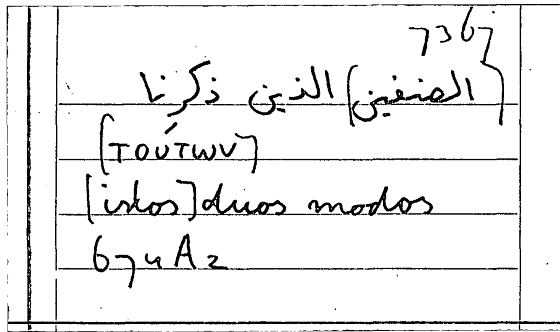 736j
[الصنفين] الذين ذكرنا
[τούτων]
[istos] duos modos
671 A2